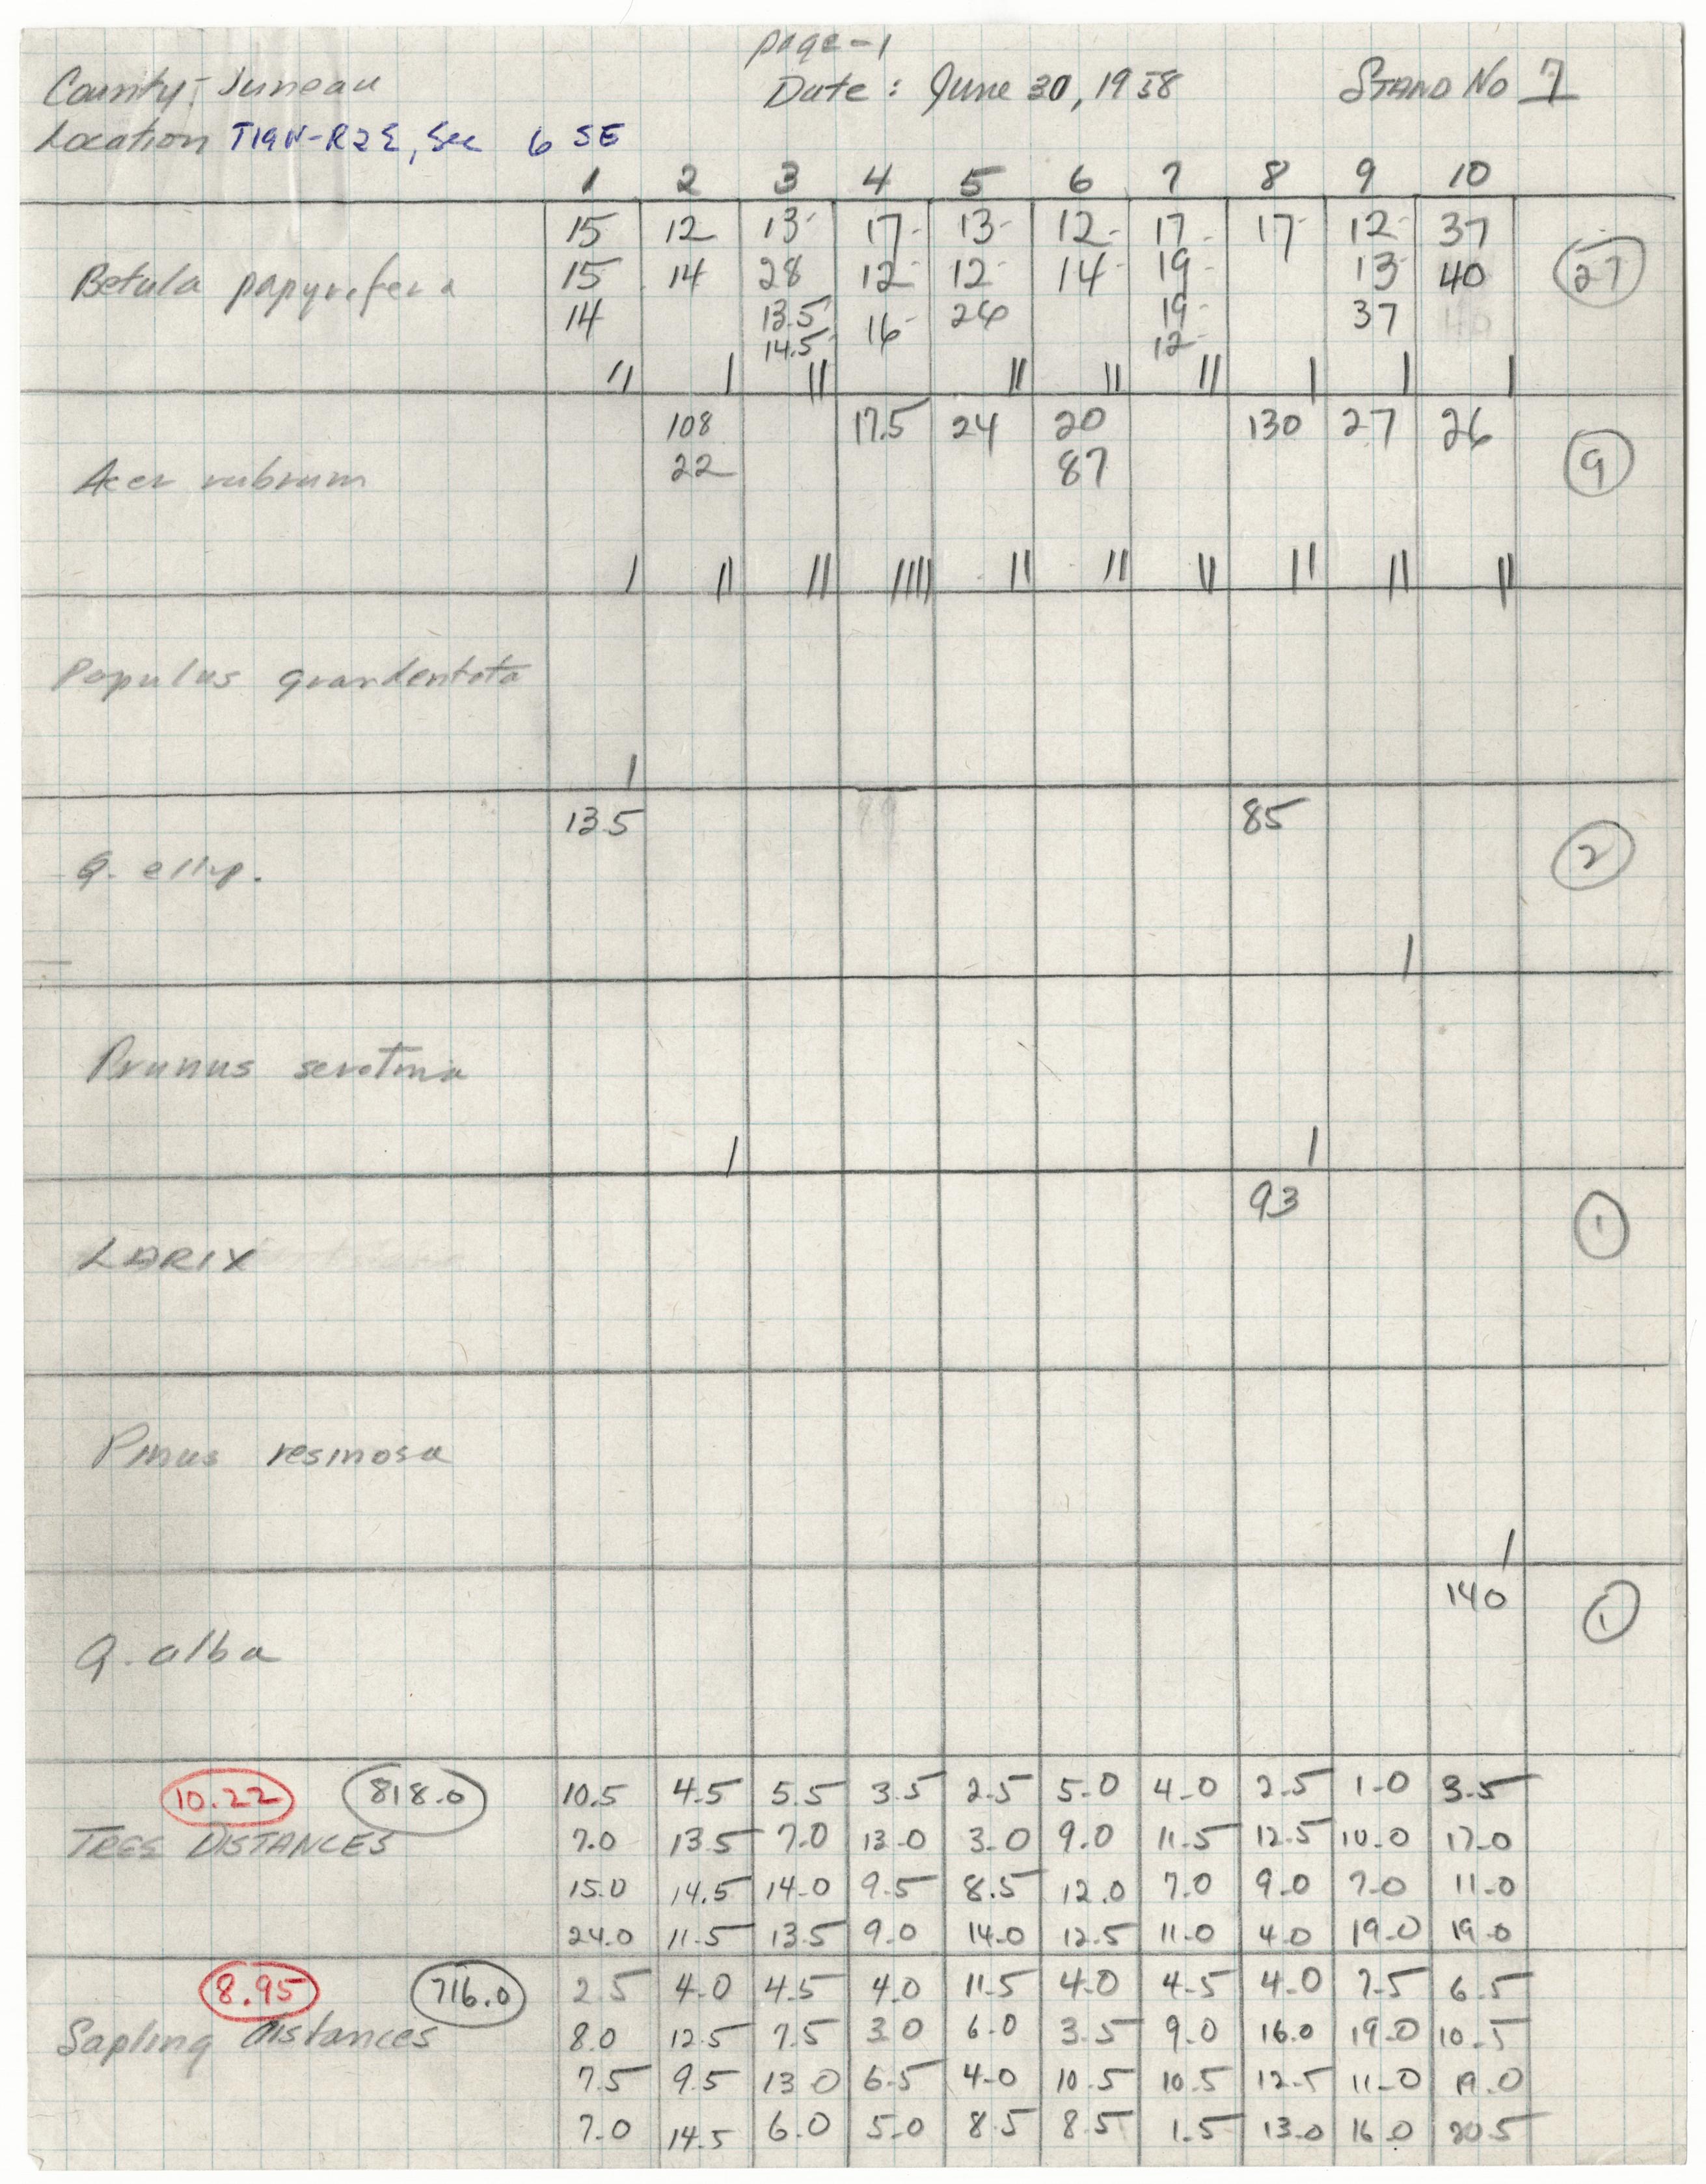 page-1
County: Juneau Date: June 30, 1958 STAND No 7
Location T19N-R2E, Sec 6 SE
1 2 3 4 5 6 7 8 9 10
15 12 13- 17- 13- 12- 17- 17- 12- 37
Betula papyrifera 15 14 28 12- 12- 14- 19- 13- 40 (27)
14 13.5- 16- 26 19- 37
14.5- 12-
// / // // // // / / /
108 17.5 24 20 130 27 26
Acer rubrum 22 87 (9)
/ // // ///// // // // // // //
Populus grandentata
/
13.5 85
Q. ellip. (2)
/
Prunus serotina
/ /
93
LARIX (1)
Pinus resinosa
/
140
Q. alba (1)
10.22 818.0 10.5 4.5 5.5 3.5 2.5 5.0 4.0 2.5 1.0 3.5
TREE DISTANCES 7.0 13.5 7.0 13.0 3.0 9.0 11.5 12.5 10.0 17.0
15.0 14.5 14.0 9.5 8.5 12.0 7.0 9.0 7.0 11.0
24.0 11.5 13.5 9.0 14.0 12.5 11.0 4.0 19.0 19.0
8.95 716.0 2.5 4.0 4.5 4.0 11.5 4.0 4.5 4.0 7.5 6.5
Sapling distances 8.0 12.5 7.5 3.0 6.0 3.5 9.0 16.0 19.0 10.5
7.5 9.5 13.0 6.5 4.0 10.5 10.5 12.5 11.0 19.0
7.0 14.5 6.0 5.0 8.5 8.5 1.5 13.0 16.0 20.5